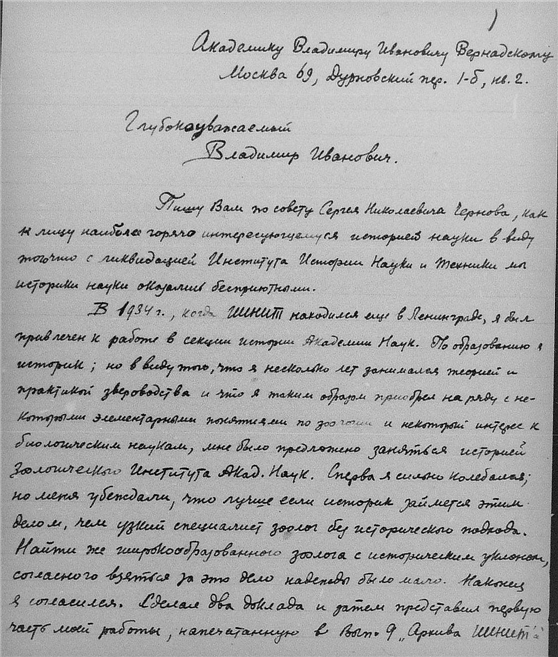 1
Академику Владимиру Ивановичу Вернадскому
Москва 69, Дурновский пер. 1-б, кв. 2.
Глубокоуважаемый
Владимир Иванович.
Пишу Вам по совету Сергея Николаевича Чернова, как
к лицу наиболее горячо интересующемуся историей науки в виду
того что с ликвидацией Института Истории Науки и Техники мы
историки науки оказались бесприютными.
В 1934 г., когда ИИНИТ находился еще в Ленинграде, я был
привлечен к работе в секции истории Академии Наук. По образованию я
историк; но в виду того, что я несколько лет занимался теорией и
практикой звероводства и что я таким образом приобрел на ряду с не-
которыми элементарными понятиями по зоологии и некоторый интерес к
биологическим наукам, мне было предложено заняться историей
Зоологического Института Акад. Наук. Сперва я сильно колебался;
но меня убеждали, что лучше если историк займется этим
делом, чем узкий специалист зоолог без исторического подхода.
Найти же широкообразованного зоолога с историческим уклоном,
согласного взяться за это дело надежды было мало. Наконец
я согласился. Сделал два доклада и затем представил первую
часть моей работы, напечатанную в Вып. 9 „Архива ИИНИТ"а